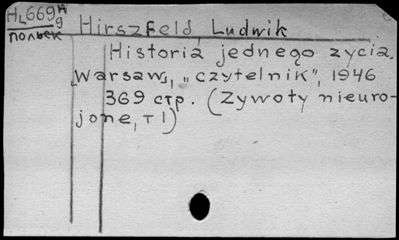 HL669 H9 Hirszfeld, Ludwik
польск
Historia jednego zycia.
Warsaw, „czytelnik", 1946
369 стр. (Zywoty nieuro-
jone, т 1)